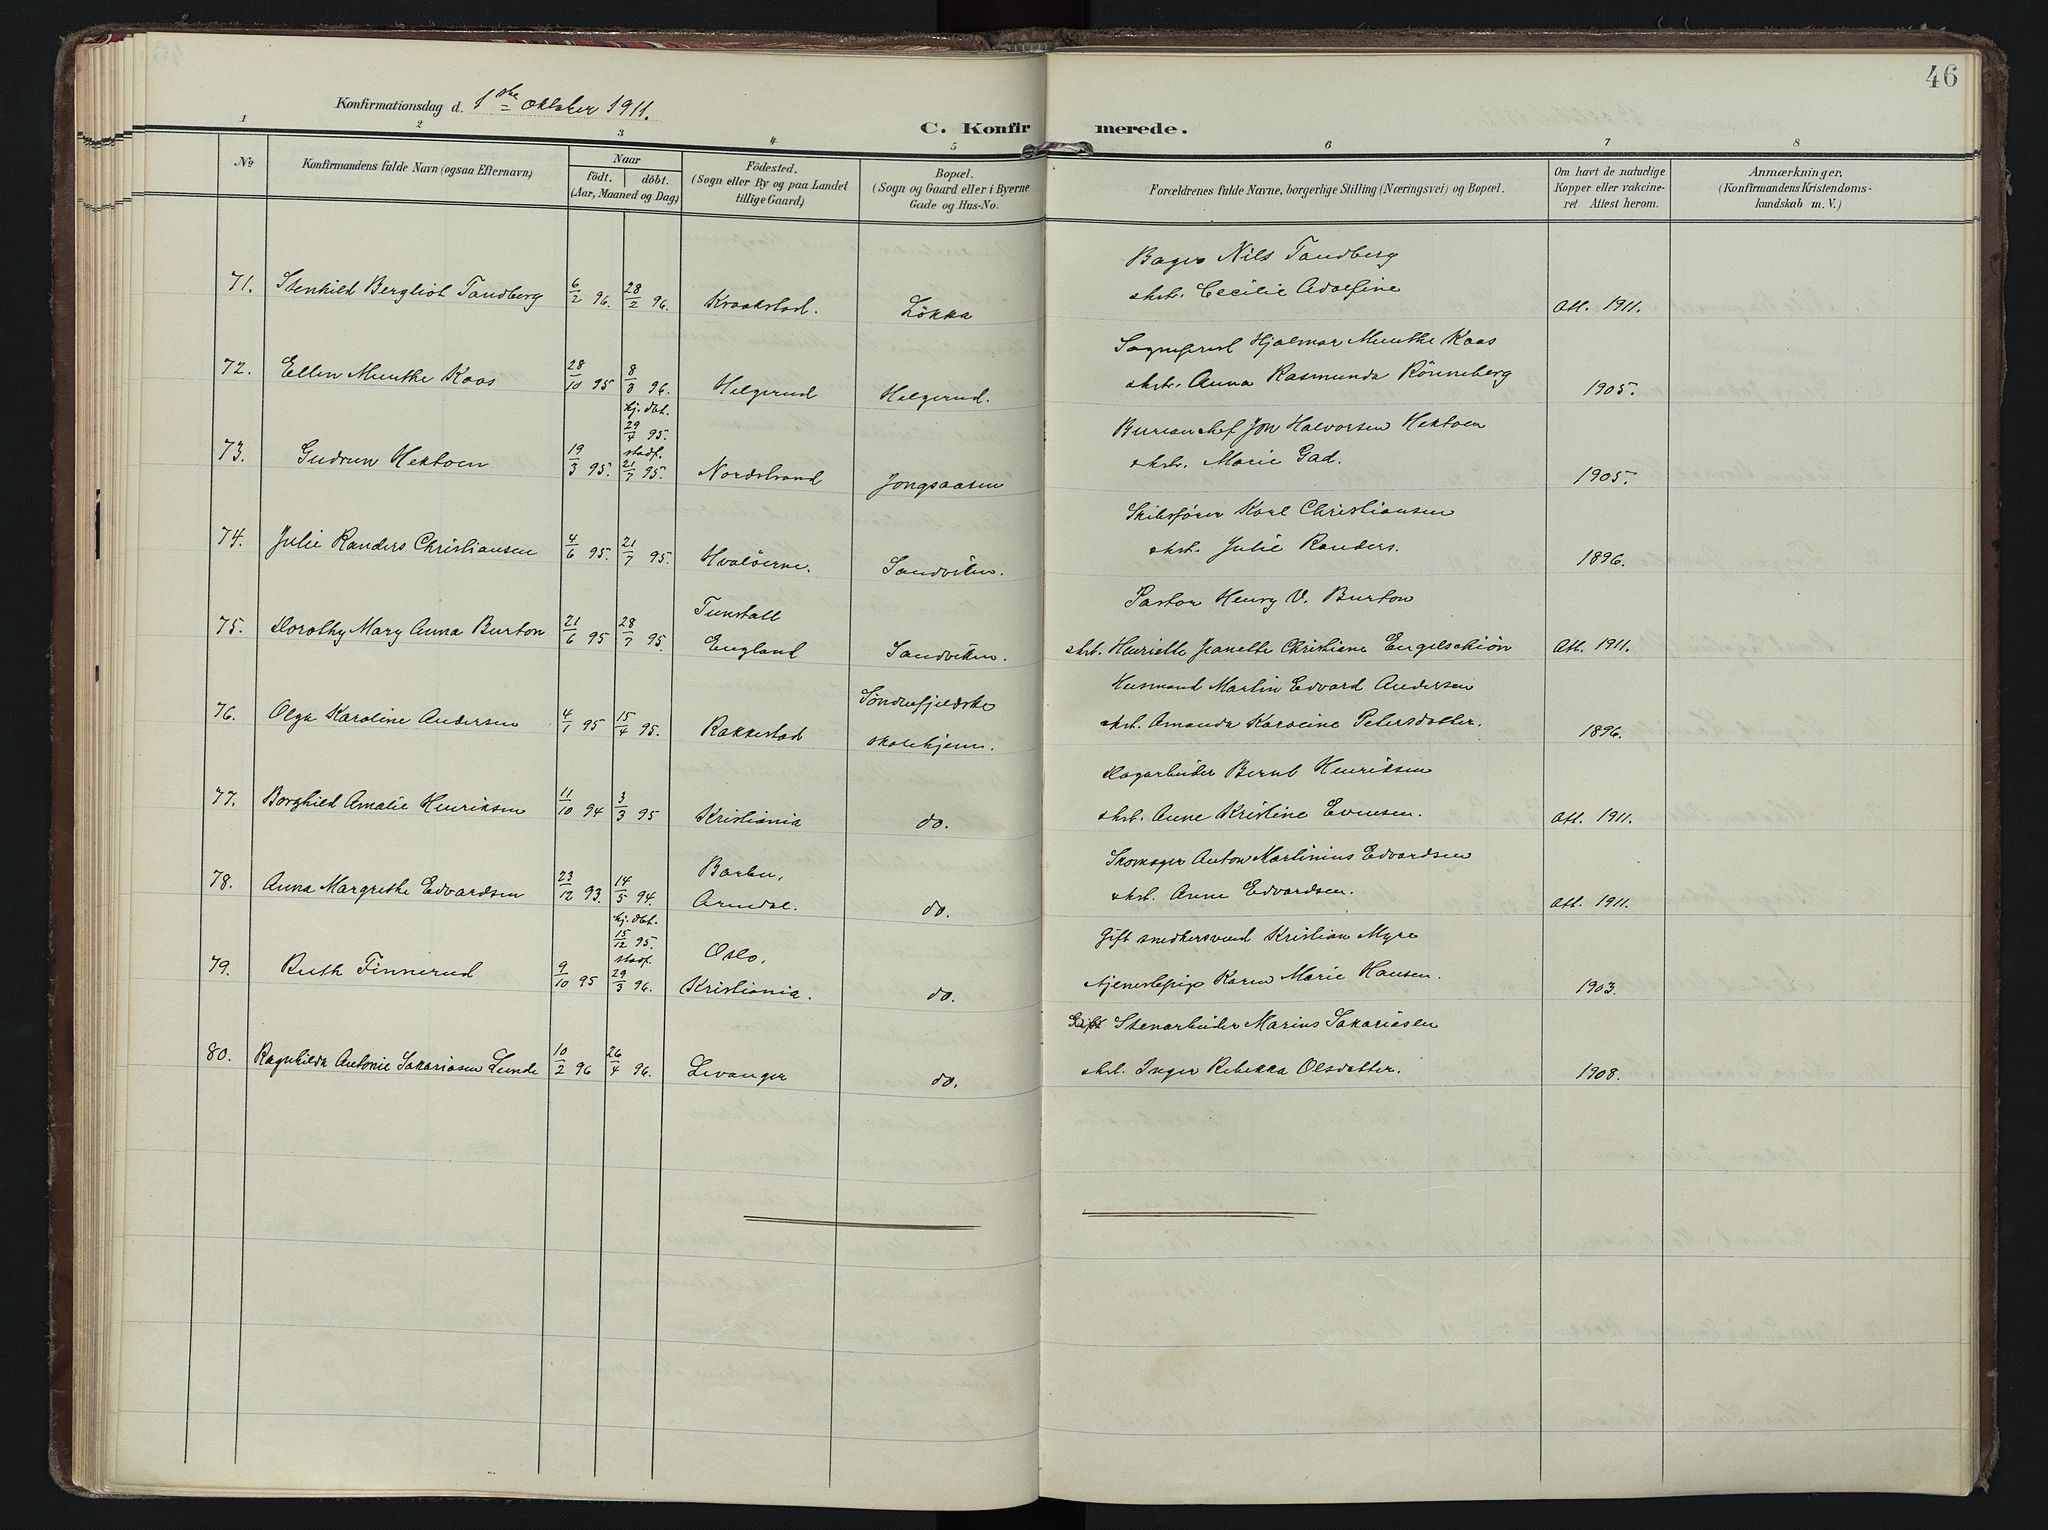 46
Konfirmationsdag d. 1ste Oktober 1911.
C. Konfirmerede.
1 2 3 4 5 6 7 8
No
Konfirmandens fulde Navn (ogsaa Efternavn)
Naar
födt. döbt.
(Aar, Maaned og Dag)
Födested.
(Sogn eller By og paa Landet
tillige Gaard)
Bopæl.
(Sogn og Gaard eller i Byerne
Gade og Hus-No.
Forældrenes fulde Navne, borgerlige Stilling (Næringsvei) og Bopæl.
Om havt de naturlige
Kopper eller vakcine-
ret. Attest herom.
Anmærkninger,
(Konfirmandens Kristendoms-
kundskab m. V.)
Bager Nils Tandberg
71. Stenhild Bergliot Tandberg 6/2 96. 28/2 96. Kraakstad. Løkka
Hstr. Cecilie Adolfine
Att. 1911.
Sagfører Hjalmar Munthe Kaas
72. Ellen Munthe Kaas 28/10 95 8/3 96. Helgerud Helgerud.
Hstr. Anna Rasmunda Rønneberg
1905.
hj. døbt. 29/4 95.
Bureauchef Jon Halvorsen Hektoen
73. Gudrun Hektoen 19/3 95. stadf. 21/7 95. Nordstrand Jongsaasen
Hstr. Marie Gad.
1905.
Skibsfører Karl Christiansen
74. Julie Randers Christiansen 4/6 95. 21/7 95. Hvaløerne. Sandviken.
Hstr. Julie Randers.
1896.
Pastor Henry V. Burton
75. Dorothy Mary Anna Burton 21/6 95 28/7 95. Tunstall England Sandviken.
Hstr. Henriette Jeanette Christiane Engelschiøn
Att. 1911.
Husmand Martin Edvard Andersen
76. Olga Karoline Andersen 4/1 95 15/4 95. Rakkestad Søndenfjeldske skolehjem.
Hstr. Amanda Karoline Petersdatter.
1896.
Dagarbeider Bernt Henriksen
77. Borghild Amalie Henriksen 11/10 94 3/3 95 Kristiania do.
Hstr. Anne Kristine Evensen.
Att. 1911.
Skomager Anton Martinius Edvardsen
78. Anna Margrethe Edvardsen 23/12 93. 14/5 94. Barbu, Arendal. do.
Hstr. Anne Edvardsen.
Att. 1911.
hj. døbt. 15/12 95.
Gift snedkersvend Kristian Myre
79. Ruth Finnerud 9/10 95 stadf. 29/3 96. Oslo, Kristiania. do.
tjenestepige Karen Marie Hansen.
1903.
Gift Stenarbeider Marius Sakariasen
80. Ragnhilda Antonie Sakariasen Lunde 10/2 96 26/4 96. Levanger do.
Hstr. Inger Rebekka Olsdatter.
1908.